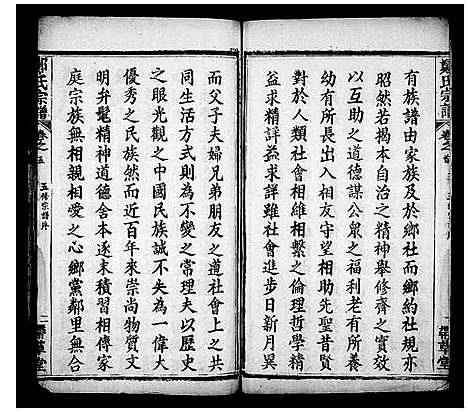 鄭氏宗譜
有族譜由家族及於鄉社而鄉約社規亦
昭然若揭本自治之精神舉修齊之成績
以互助之道德謀公衆之福利老有所養
幼有所長出入相友守望相助先聖昔賢
對於人類社會相維相繫之倫理哲學精
益求精詳益求詳雖社會進步日新月異
而父子夫婦兄弟朋友之道社會上之共
同生活方式則為不變之常理夫以歷史
之眼光觀之中國民族誠不失為一偉大
優秀之民族然而近百年來崇尚物質文
明弁髦精神道德舍本逐末積習相傳家
庭宗族無相親相愛之心鄉黨鄰里無合
鄭氏宗譜
卷之
五修宗譜序
二